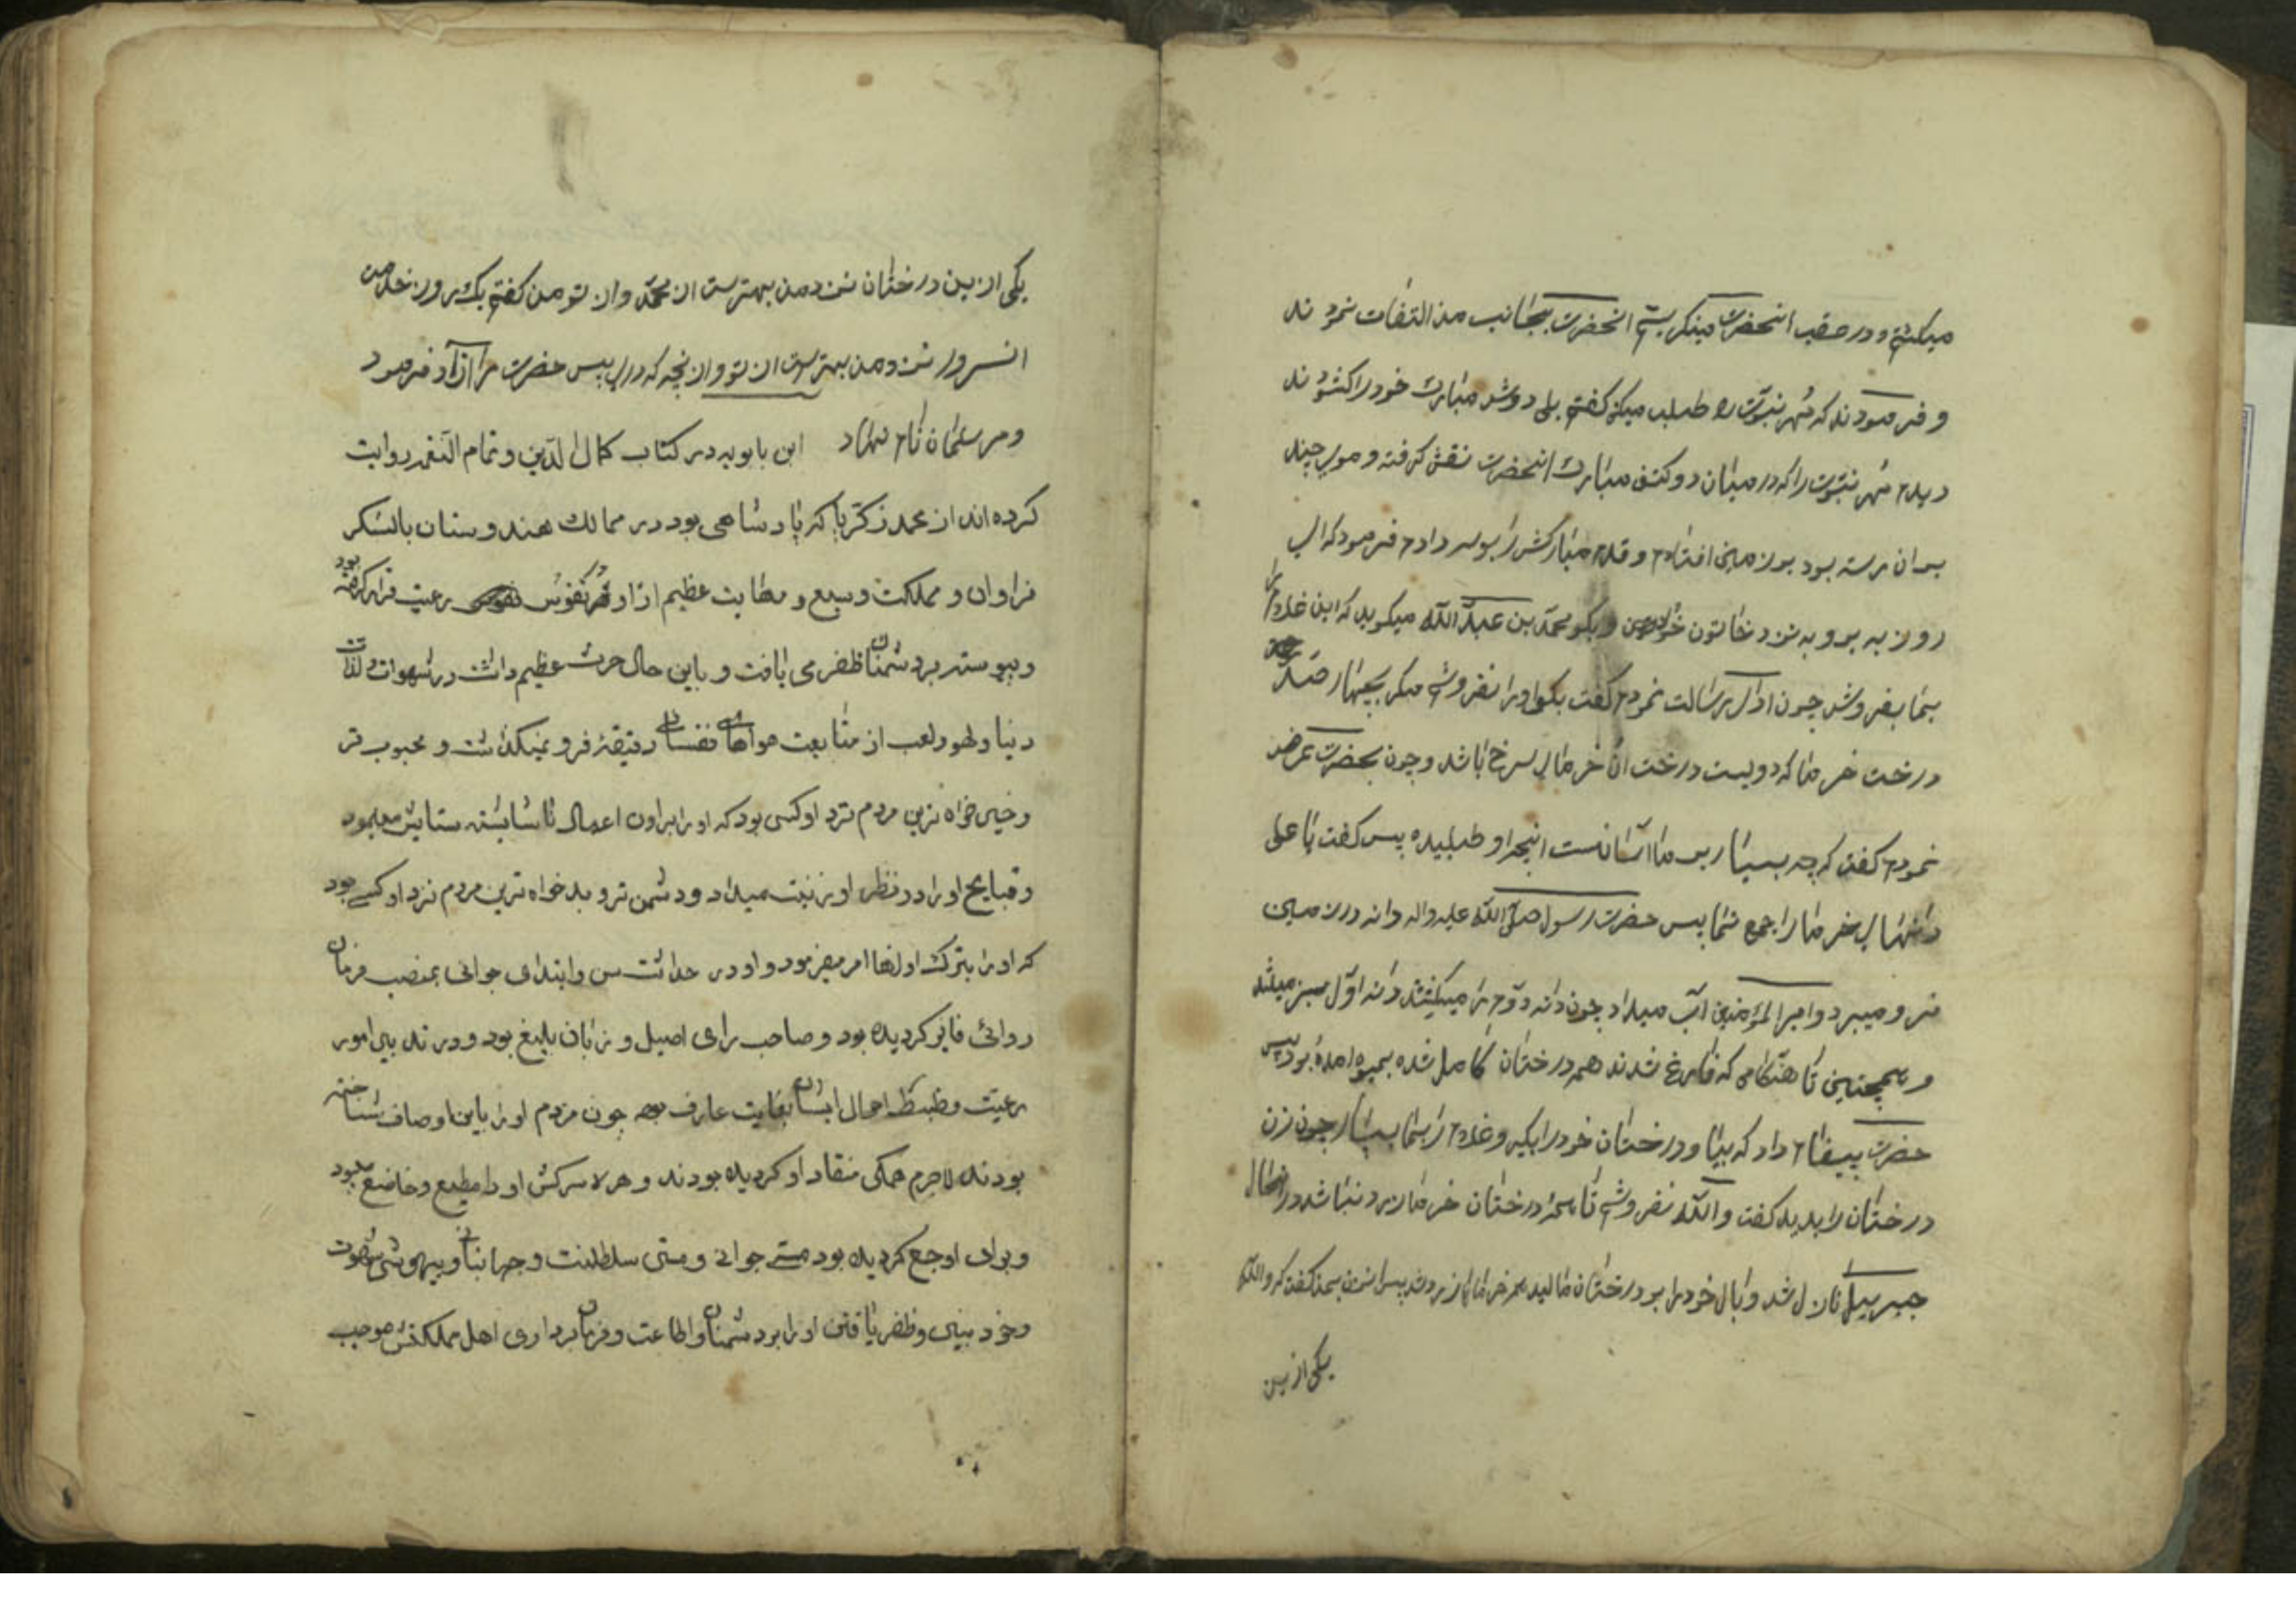 میکشتم و در عقب انحضرت مینکریستم انحضرت بجانب من التفات نمودند
و فرمودند که مهر نبوت را طلب میکنی کفتم بلی دوش مبارک خود را کشودند
دیدم مهر نبوت را که در میان دو کتف مبارک انحضرت نقش کرفته و موی چند
بر ان رسته بود بر زمین افتادم و قدم مبارکش را بوسه دادم فرمود که ای
روز به برو به نزد خاتون خود و بکو محمد بن عبد الله میکوید که این غلام را
بما بفروش چون ادای رسالت نمودم کفت بکو او را نفروشم مکر بچهار صد
درخت خرما که دویست درخت ان خرمای سرخ باشد و چون بحضرت عرض
نمودم کفت که چه بسیار بر ما اسانست انچه او طلبیده پس کفت یا علی
دانهای خرما را جمع نما پس حضرت رسول صلی الله علیه واله دانه در زمین
فرو میبرد و امیر المؤمنین آب میداد چون دانه دوم را میکشتند دانه اول سبز میشد
و همچنین تا هنکامی که فارغ شدند همه درختان کامل شده بمیوه امده بود پس
حضرت پیغام داد که بیا و درختان خود را بکیر و غلام را بما بسپار چون زن
درختان را بدید کفت والله نفروشم تا همه درختان خرما زرد نباشد در انحال
جبرییل نازل شد و بال خود را بر درختان مالید همه خرماها زرد شد پس ان زن بمن کفت که والله
یکی ازین
یکی ازین درختان نزد من بهتر ست از محمد و از تو من کفتم یک روز خدمت
انسرور نزد من بهتر ست از تو و از نچه که داری پس حضرت مرا ازاد فرمود
و مرا سلمان نام نهاد ابن بابویه در کتاب کمال الدین و تمام النعمه روایت
کرده اند از محمد زکریا که پادشاهی بود در ممالک هندوستان با لشکر
فراوان و مملکت وسیع و مهابت عظیم از او در نفوس رعیت قرار کرفته بود
و پیوسته بر دشمنان ظفر می یافت و باین حال حرث عظیم داشت در شهوات و لذات
دنیا و لهو و لعب از متابعت هواهای نفسانی دقیقهٔ فرو نمیکذاشت و محبوب تر
و خیر خواه ترین مردم نزد او کسی بود که او را بر اون اعمال ناشایسته ستایش مینمود
و قبایح او را در نظر او زینت میداد و دشمن تر و بد خواه ترین مردم نزد او کسی بود
که او را بترک اونها امر میفرمود و او در حداثت سن و ابتدای جوانی بمنصب فرمان
روائی فایز کردیده بود و صاحب رای اصیل و زبان بلیغ بود و در تدبیر امور
رعیت و ضبط احوال ایشان بغایت عارف بود چون مردم او را باین اوصاف شناخته
بودند لاجرم همکی منقاد او کردیده بودند و هر سرکش او را مطیع و خاضع بود
و برای او جمع کردیده بود مستی جوانی و مستی سلطنت و جهانبانی و بیهوشی شهوت
و خود بینی و ظفر یافتن او را بر دشمنان و اطاعت و فرمانبرداری اهل مملکتش موجب